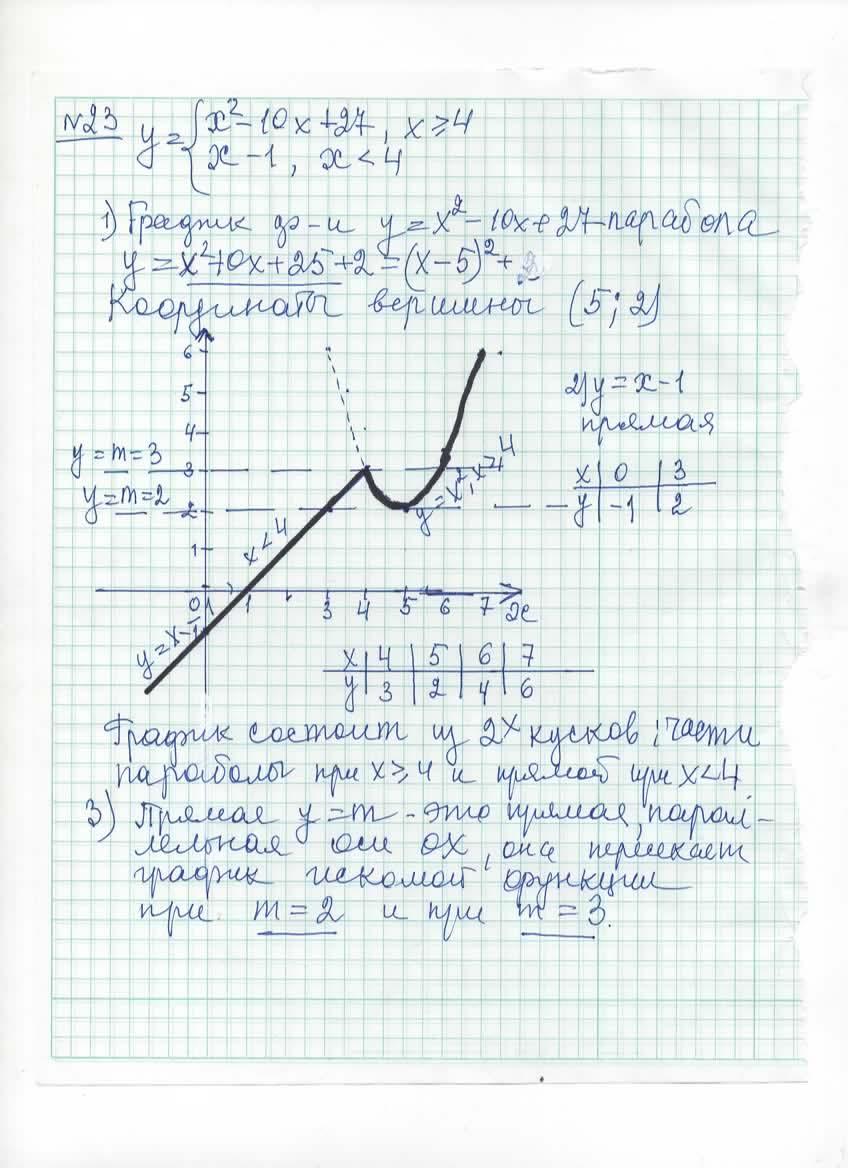 №23 y = { x² - 10x + 27, x ≥ 4
x - 1, x < 4
1) График ф-и y = x² - 10x + 27 - парабола
y = x² - 10x + 25 + 2 = (x - 5)² + 2
Координаты вершины (5; 2)
6
5
4
3
2
1
y = m = 3
y = m = 2
x < 4
y = x², x ≥ 4
y = x - 1
0 1 3 4 5 6 7 x
-1
2) y = x - 1
прямая
x | 0 | 3
y | -1 | 2
x | 4 | 5 | 6 | 7
y | 3 | 2 | 4 | 6
График состоит из 2х кусков: части
параболы при x ≥ 4 и прямой при x < 4
3) Прямая y = m - это прямая, парал-
лельная оси OX, она пересекает
график искомой функции
при m = 2 и при m = 3.